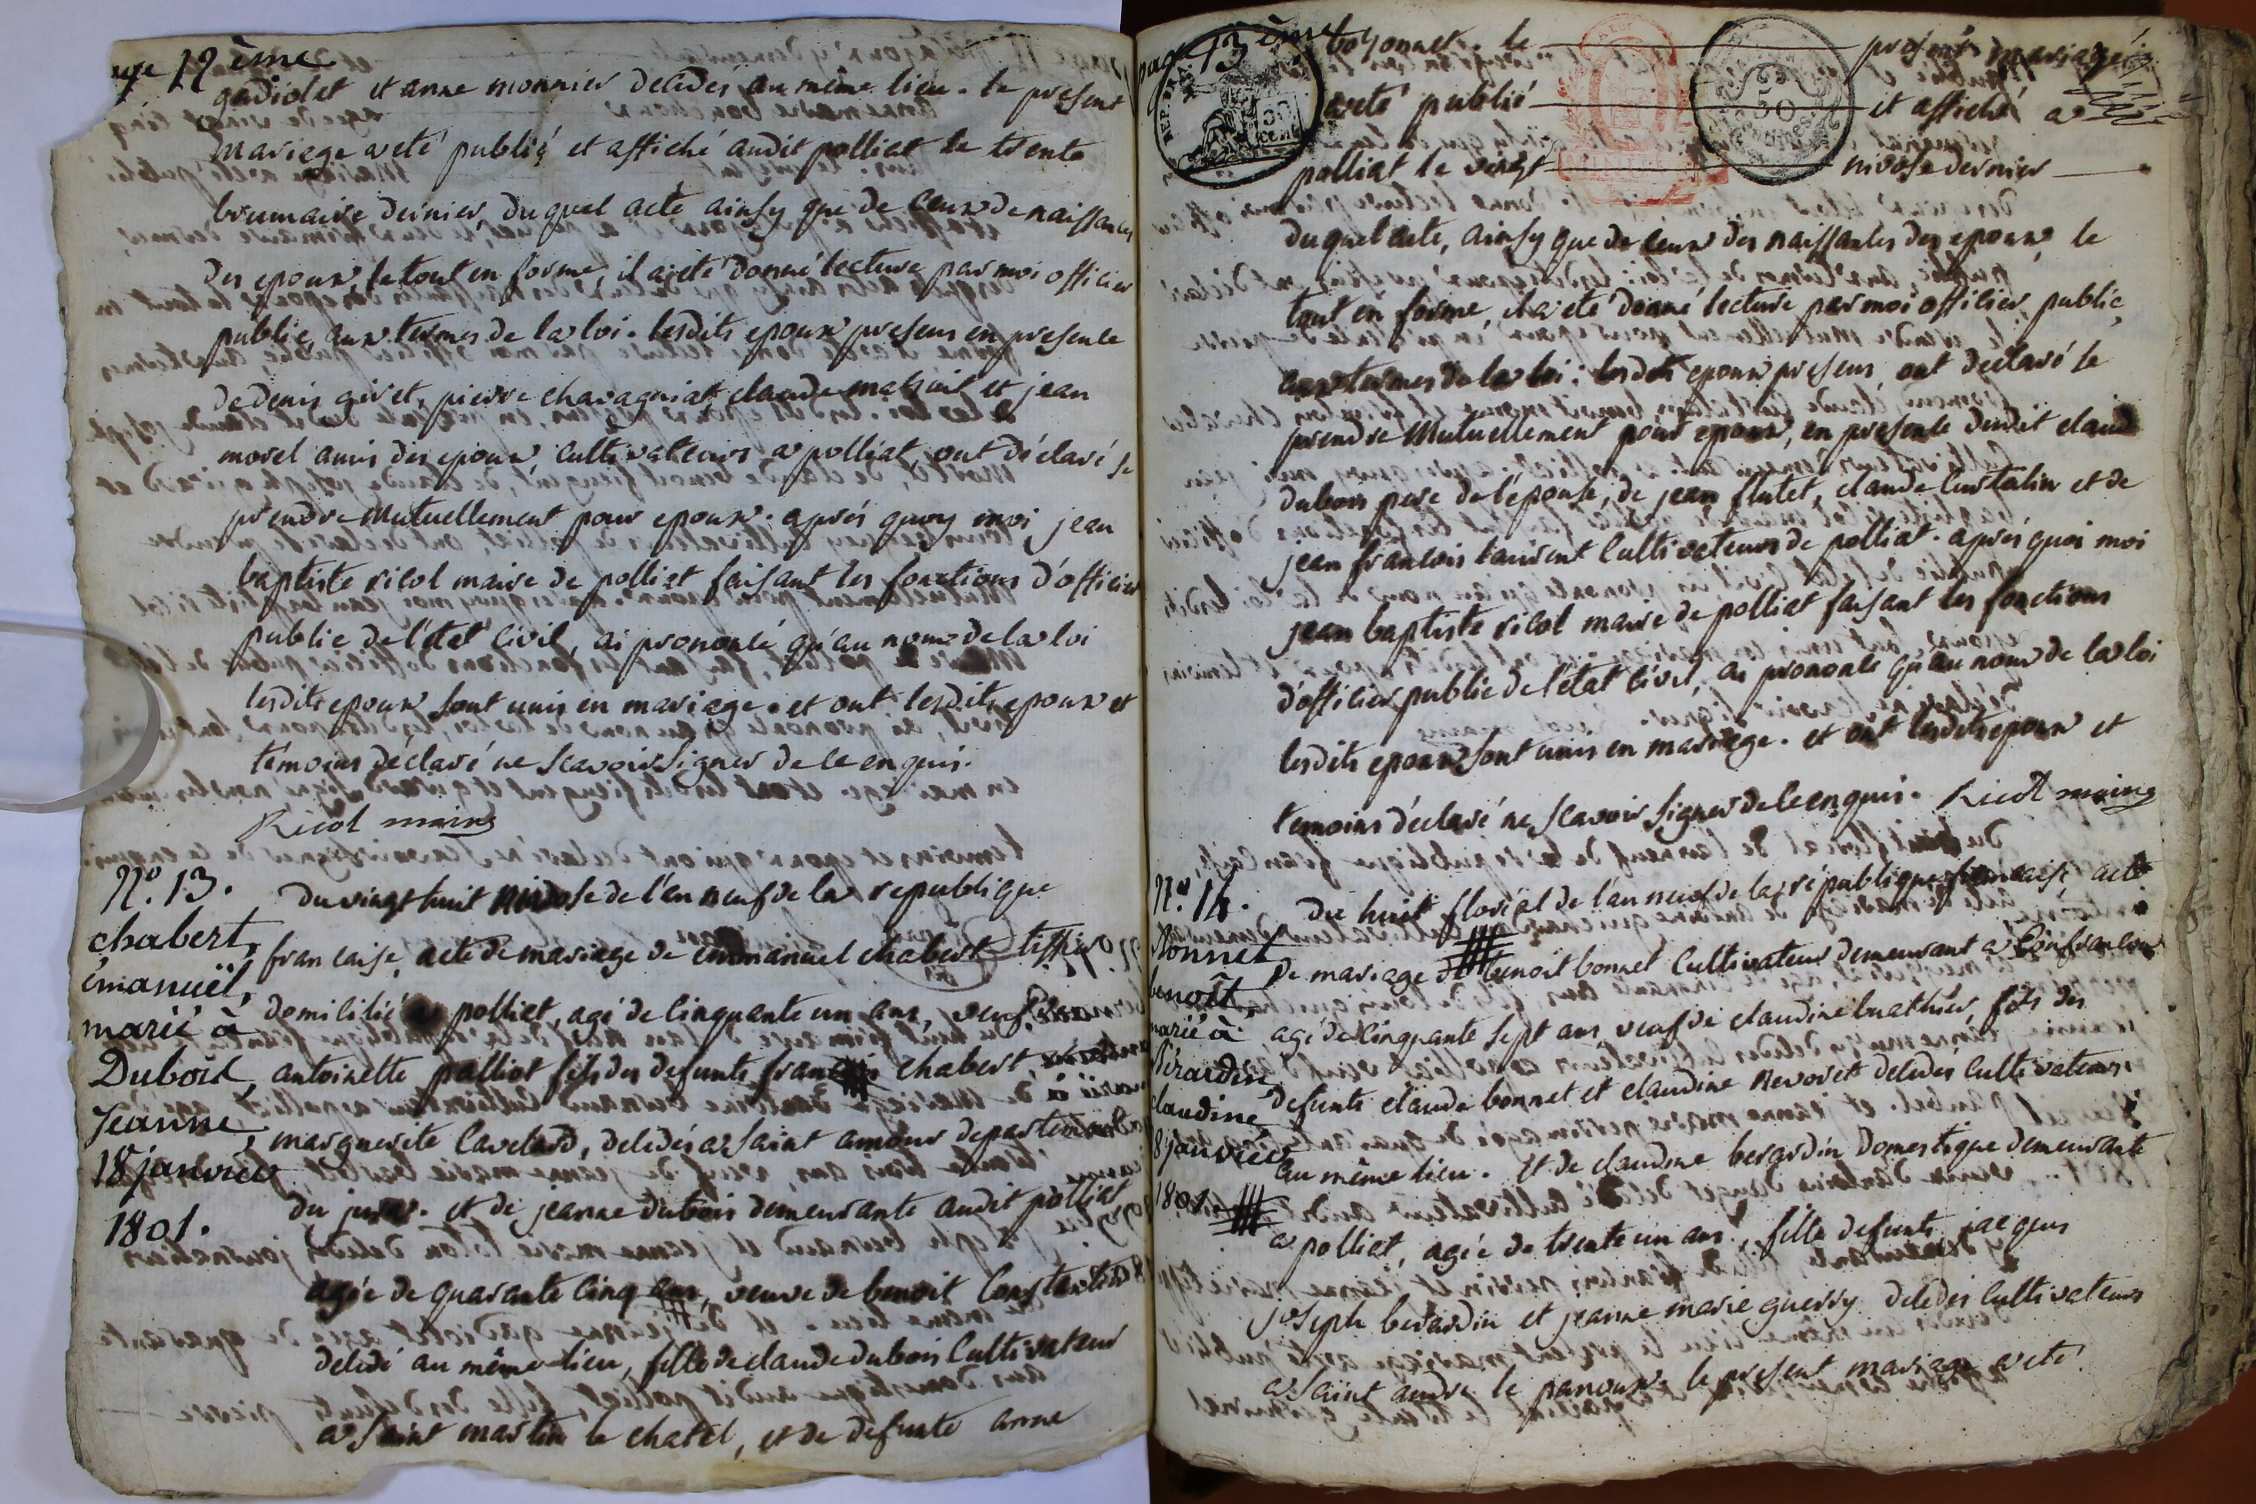 page 12ème
gadiolet et anne monnier décédés au même lieu. le present
mariage a eté publié et affiché audit polliat le trente
brumaire dernier duquel acte ainsy que de ceux de naissances
des epoux, le tout en forme, il a eté donné lecture par moi officier
public, aux termes de la loi. lesdits epoux presens en presence
de denis givet, pierre chavagniat claude mathuit et jean
morel amis des epoux, cultivateurs a polliat ont déclaré se
prendre mutuellement pour epoux. après quoy moi jean
baptiste ricol maire de polliat faisant les fonctions d'officier
public de l'état civil, ai prononcé qu'au nom de la loi
lesdits epoux sont unis en mariage. et ont lesdits epoux et
témoins déclaré ne scavoir signer de ce enquis.
Ricol maire
N°. 13.
chabert,
émanuël,
marié à
Dubois,
Jeanne,
18 janvier
1801.
Du vingt huit nivose de l'an neuf de la republique
francaise, acte de mariage de emmanuel chabert tissier
domicilié a polliat, agé de cinquante un ans, veuf de
antoinette polliat fils des defunts francois chabert,
marguerite cavelard, décédés a saint amour departement
du jura. et de jeanne dubois demeurante audit polliat
agée de quarante cinq ans, veuve de benoit constantin
décédé au même lieu, fille de claude dubois cultivateur
a saint martin le chatel, et de defunte anne
page 13ème
boyonnet. le present mariage
a eté publié et affiché a
polliat le vingt nivose dernier
duquel acte, ainsy que de ceux des naissances des epoux, le
tout en forme, il a eté donné lecture par moi officier public,
aux termes de la loi: lesdits epoux presens, ont déclaré se
prendre mutuellement pour epoux, en presence dudit claude
dubois pere de l'épouse, de jean flutet, claude custalin et de
jean francois laurent cultivateurs de polliat. après quoi moi
jean baptiste ricol maire de polliat faisant les fonctions
d'officier public de l'état civil, ai prononcé qu'au nom de la loi
lesdits epoux sont unis en mariage. et ont lesdits epoux et
temoins déclaré ne scavoir signer de ce enquis. Ricol maire
N°. 14.
Bonnet
benoît
marié à
Bérardin,
claudine,
8 janvier
1801
Du huit floréal de l'an neuf de la république francaise, acte
de mariage de benoit bonnet cultivateur demeurant a confrancon
agé de cinquante sept ans, veuf de claudine buathier, fils des
defunts claude bonnet et claudine nevoret décédés cultivateurs
au même lieu. et de claudine berardin domestique demeurante
a polliat, agée de trente un ans, fille defunts jacques
joseph berardin et jeanne marie guerry décédés cultivateurs
a saint andré le panoux. le present mariage a eté